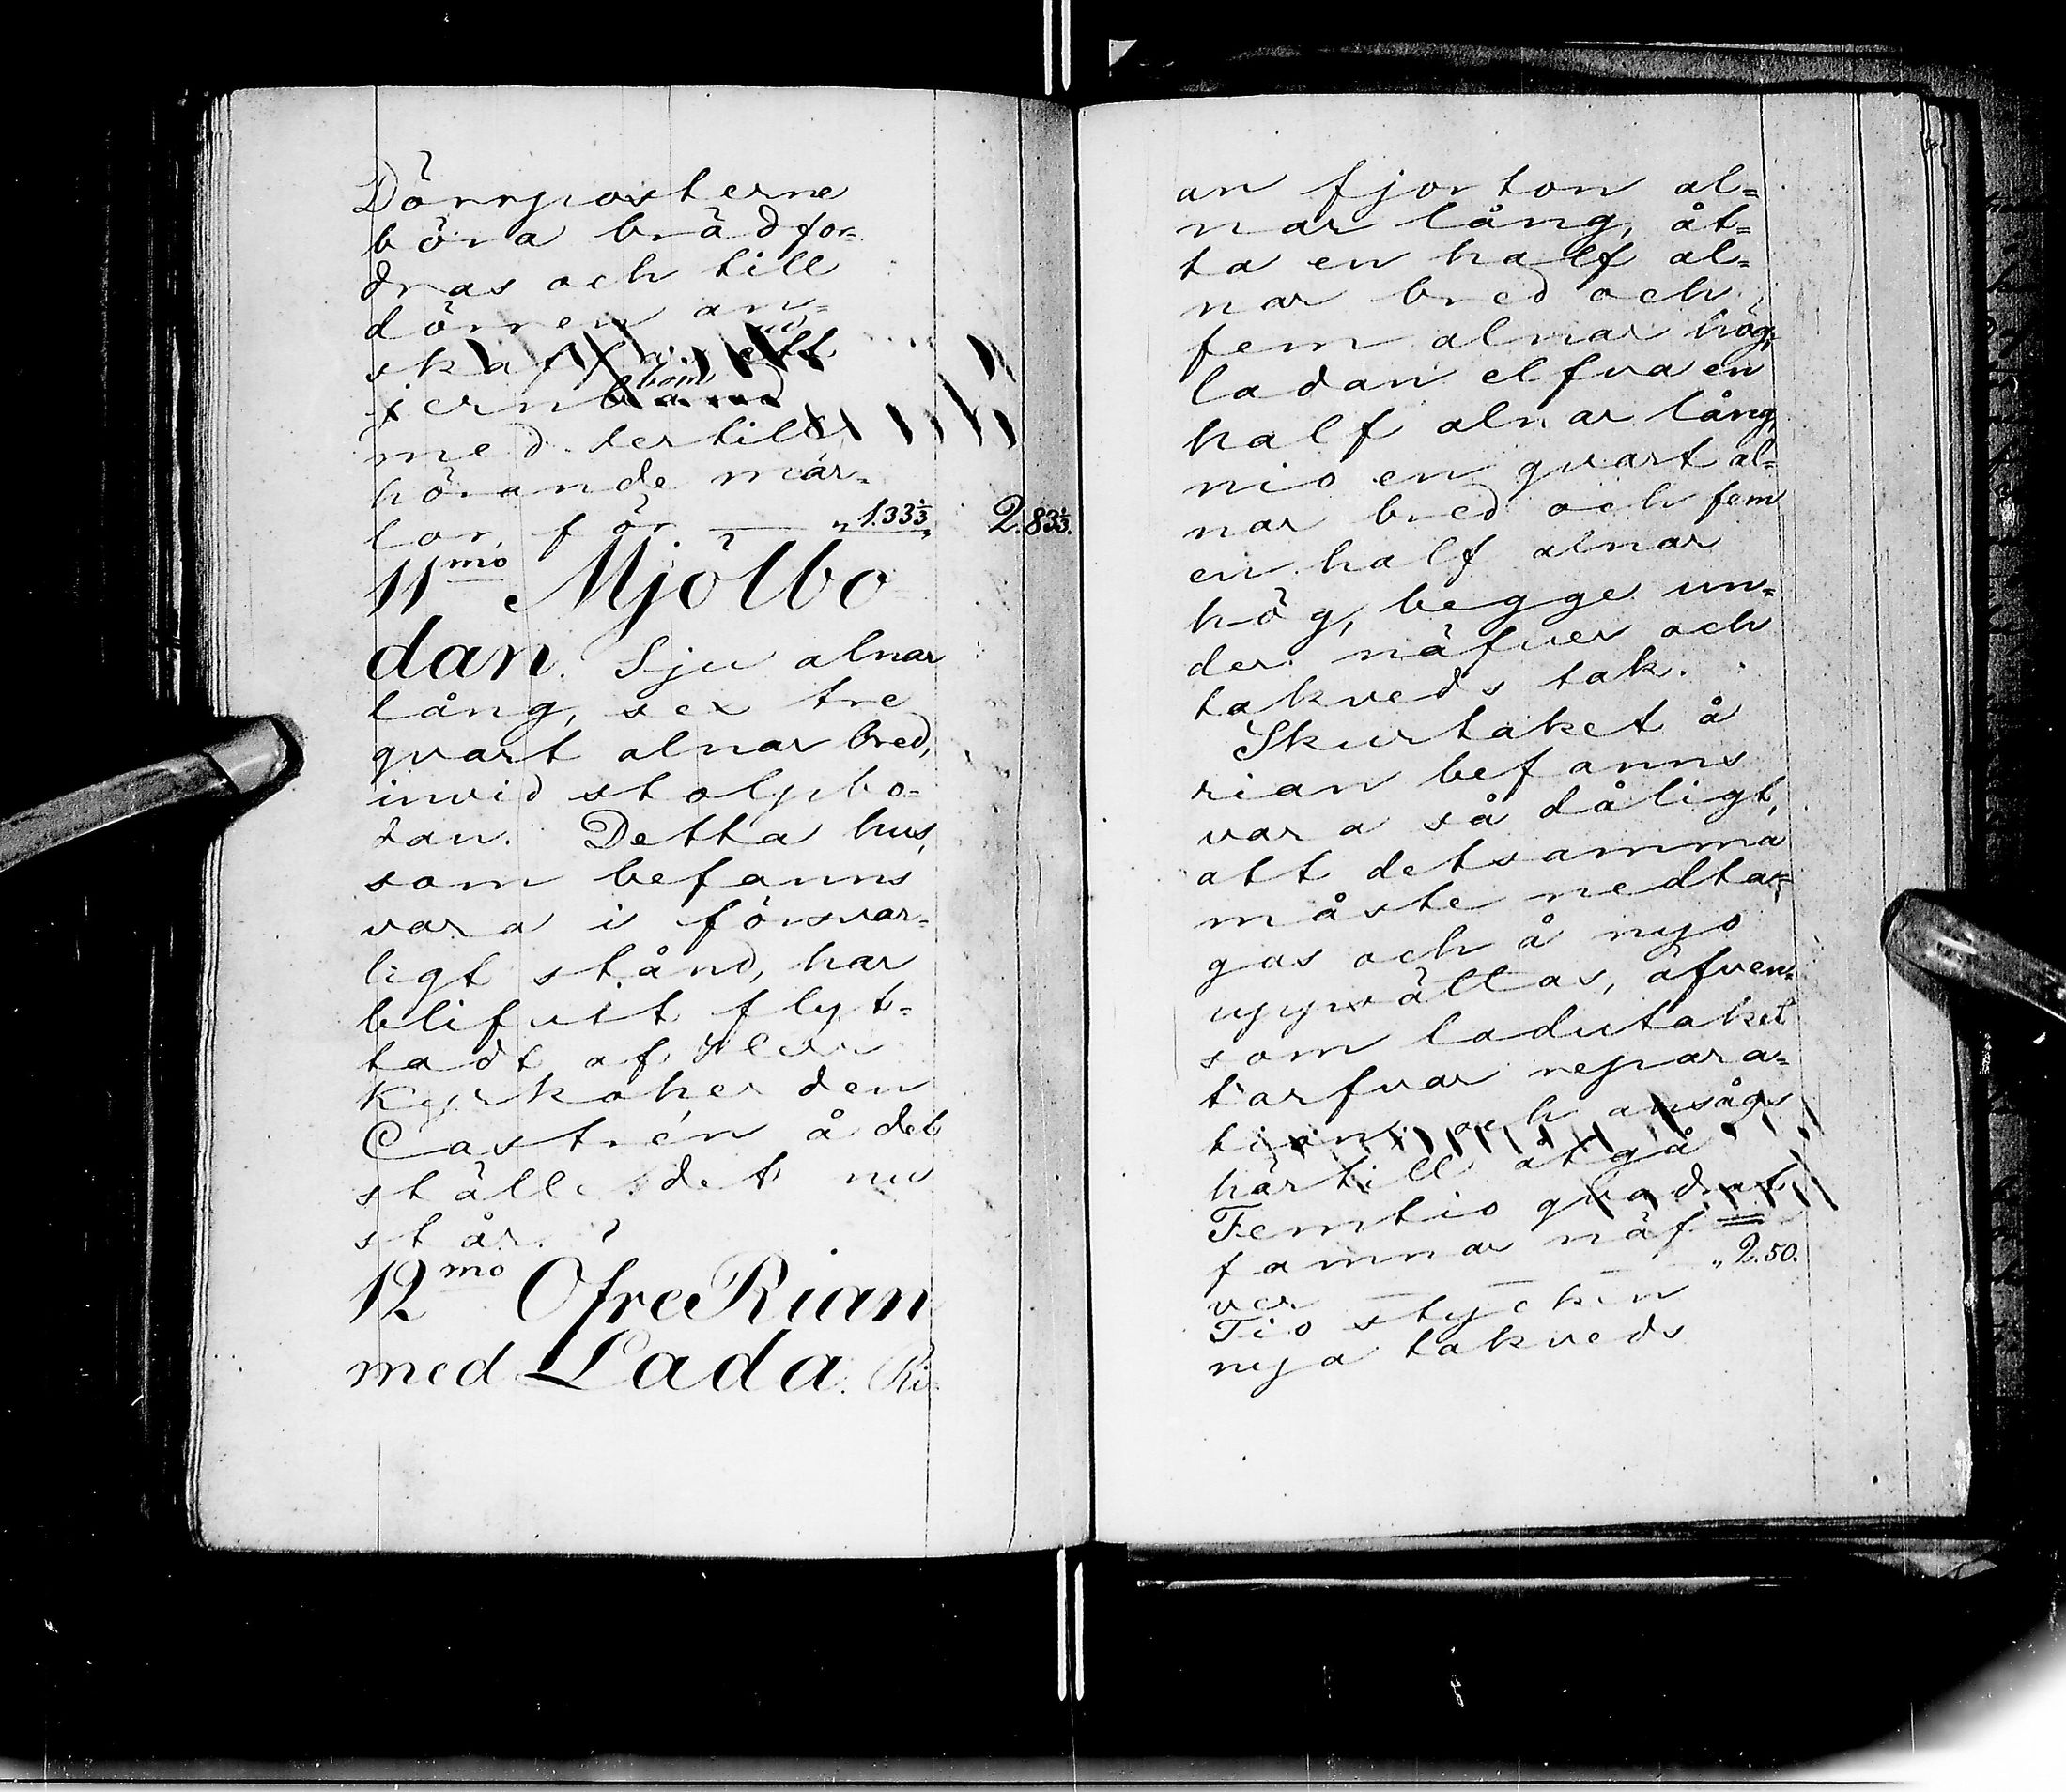 Dörrposterne
böra brädfor-
dras och till
dörren an-
skaffas
jern bom
med dertill
hörande mär-
lor, för — „ 1.33⅓. 2.83⅓.
11mo Mjölbo
dan. Sju alnar
lång, sex tre
qvart alnar bred,
invid stolpbo-
dan. Detta hus,
som befanns
vara i försvar-
ligt stånd, har
blifvit flyt-
tadt af
Kyrkoherden
Castrén å det
ställe det nu
står.
12mo Öfre Rian
med Lada. Ri-
an fjorton al=
nar lång, åt=
ta en half al=
nar bred och
fem alnar hög,
ladan elfva en
half alnar lång,
nio en qvart al=
nar bred och fem
en half alnar
hög, begge un=
der näfver och
takveds tak.
Skurtaket å
rian befanns
vara så dåligt,
att detsamma
måste nedta=
gas och å nyo
uppsättas, äfven=
som ladutaket
tarfvar repara=
tion och ansågs
härtill åtgå
Femtio quadrat
famnar näf=
ver — — — „ 2.50.
Tio stycken
nya takveds